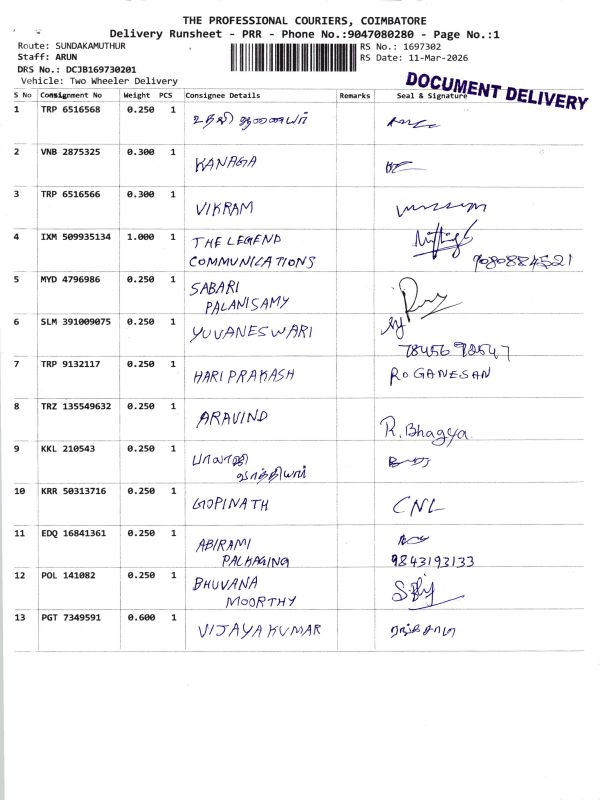 THE PROFESSIONAL COURIERS, COIMBATORE
Delivery Runsheet - PRR - Phone No.:9047080280 - Page No.:1
Route: SUNDAKAMUTHUR
RS No.: 1697302
Staff: ARUN
RS Date: 11-Mar-2026
DRS No.: DCJB169730201
Vehicle: Two Wheeler Delivery
DOCUMENT DELIVERY
S No Consignment No Weight PCS Consignee Details Remarks Seal & Signature
1 TRP 6516568 0.250 1 உதவி ஆணையர்
2 VNB 2875325 0.300 1 KANAGA
3 TRP 6516566 0.300 1 VIKRAM
4 IXM 509935134 1.000 1 THE LEGEND
COMMUNICATIONS 9080884521
5 MYD 4796986 0.250 1 SABARI
PALANISAMY
6 SLM 391009075 0.250 1 YUVANESWARI
7 TRP 9132117 0.250 1 HARI PRAKASH RO GANESAN
8 TRZ 135549632 0.250 1 ARAVIND R. Bhagya
9 KKL 210543 0.250 1 பாலாஜி
வாத்தியார்
10 KRR 50313716 0.250 1 GOPINATH CNL
11 EDQ 16841361 0.250 1 ABIRAMI
PACKAGING 9843193133
12 POL 141082 0.250 1 BHUVANA
MOORTHY
13 PGT 7349591 0.600 1 VIJAYAKUMAR